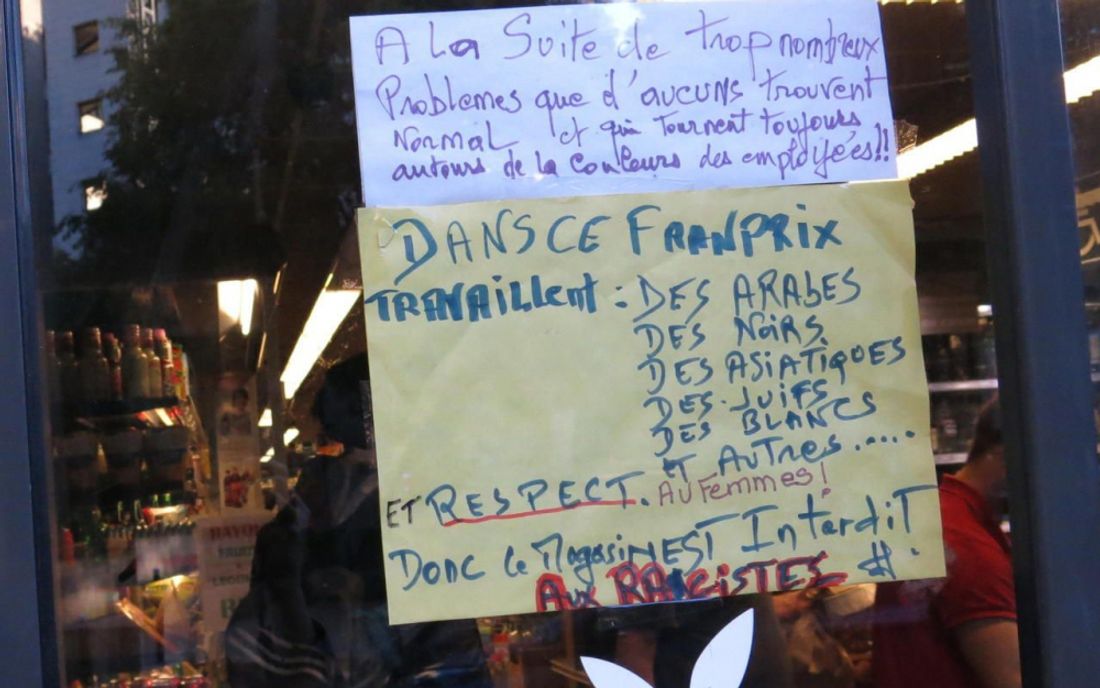 A La Suite de trop nombreux
Problemes que d'aucuns trouvent
Normal et qui Tournent toujours
autours de la couleurs des employées!!
DANS CE FRANPRIX
TRAVAILLENT : DES ARABES
DES NOIRS
DES ASIATIQUES
DES JUIFS
DES BLANCS
ET AUTRES.....
ET RESPECT. AU Femmes!
DONC Le Magasin EST InterdiT
Aux RACISTES
RAYON
FRUITS
LEGUM